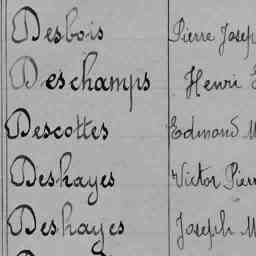 Desbois Pierre Josep
Deschamps Henri
Descottes Edmond M
Deshayes Victor Pier
Deshayes Joseph M